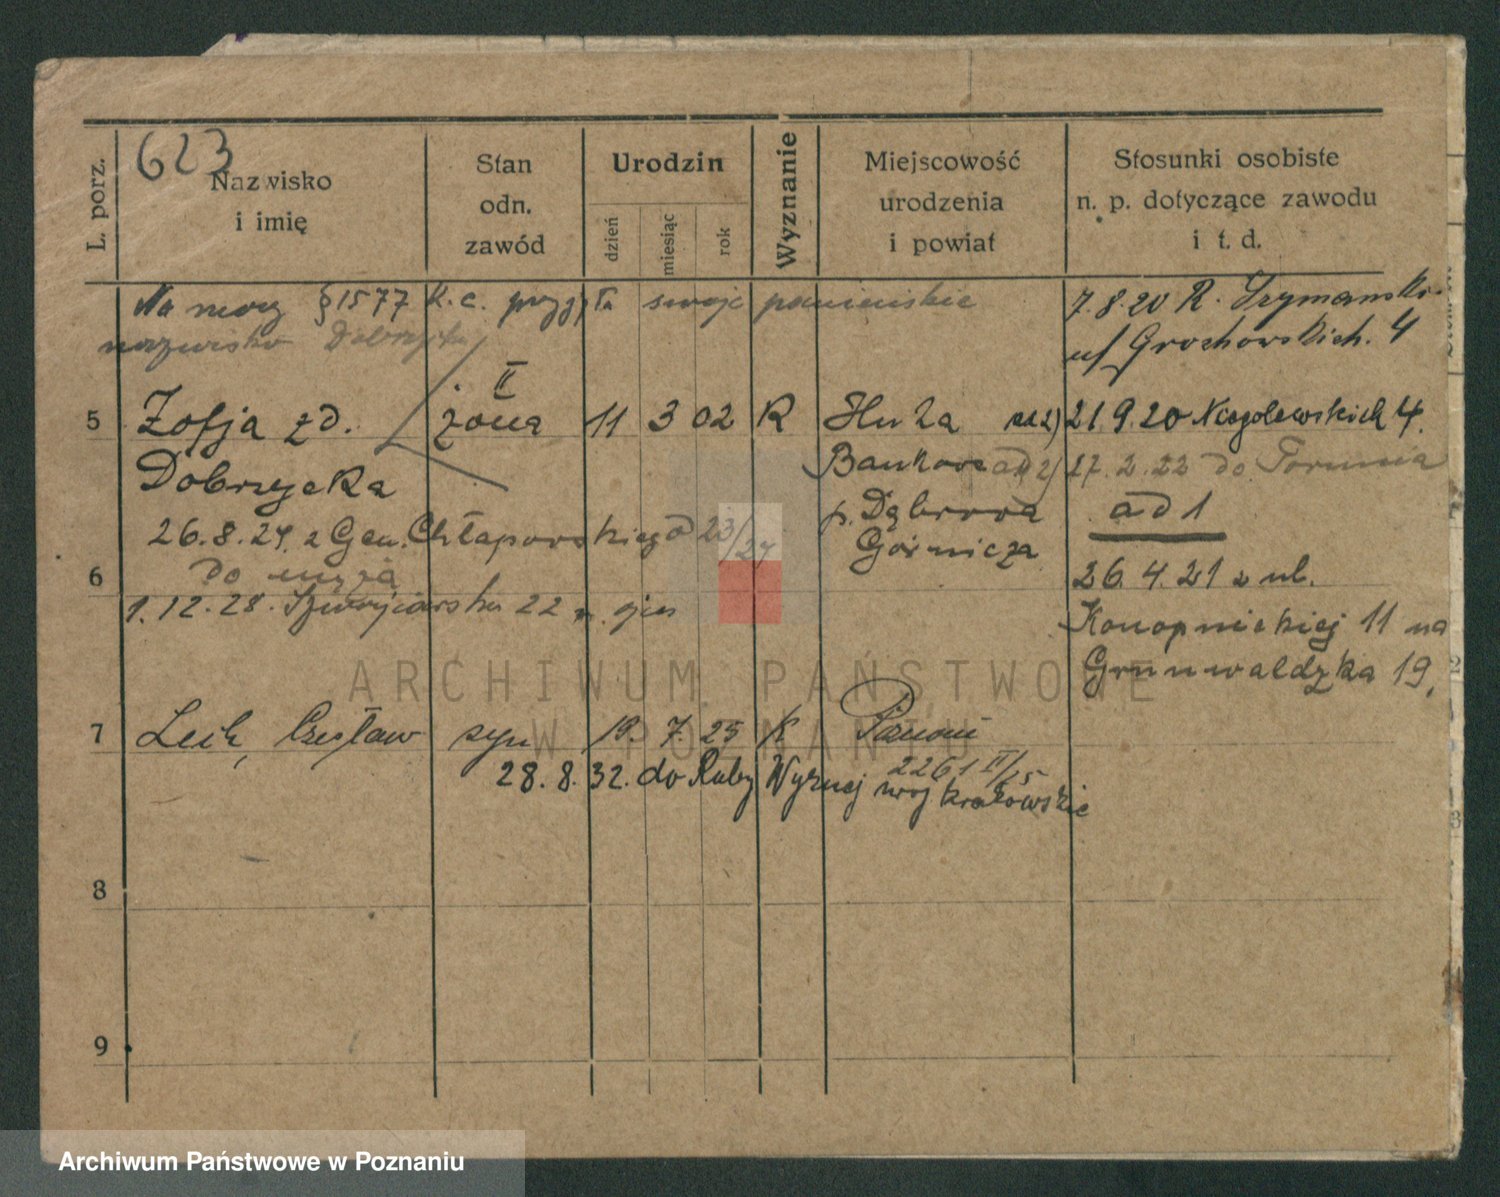 623
L. porz.
Nazwisko
i imię
Stan
odn.
zawód
Urodzin
dzień
miesiąc
rok
Wyznanie
Miejscowość
urodzenia
i powiat
Stosunki osobiste
n. p. dotyczące zawodu
i t. d.
Na mocy § 1577 K. c. przyjęła swoje panieńskie
nazwisko Dobrzycka
7.8.20 R. Szymański
ul Grochowskich. 4
II
5 Zofja zd. żona 11 3 02 R Huta
Dobrzycka Bankowa
p. Dąbrowa
Górnicza
ad 2) 21.9.20 Niegolewskich 4.
ad 2) 17.2.22 do Torunia
ad 1
26.4.21 z ul.
Konopnickiej 11 na
Grunwaldzka 19.
26.8.24. z Gen. Chłapowskiego 23/24
do męża
6
1.12.28. Szwajcarska 22
7 Lech, Czesław syn 19. 7. 25 K Poznań
2261 II/25
28.8.32. do Ruby Wyżnej woj krakowskie
8
9
ARCHIWUM PAŃSTWOWE
W POZNANIU
Archiwum Państwowe w Poznaniu